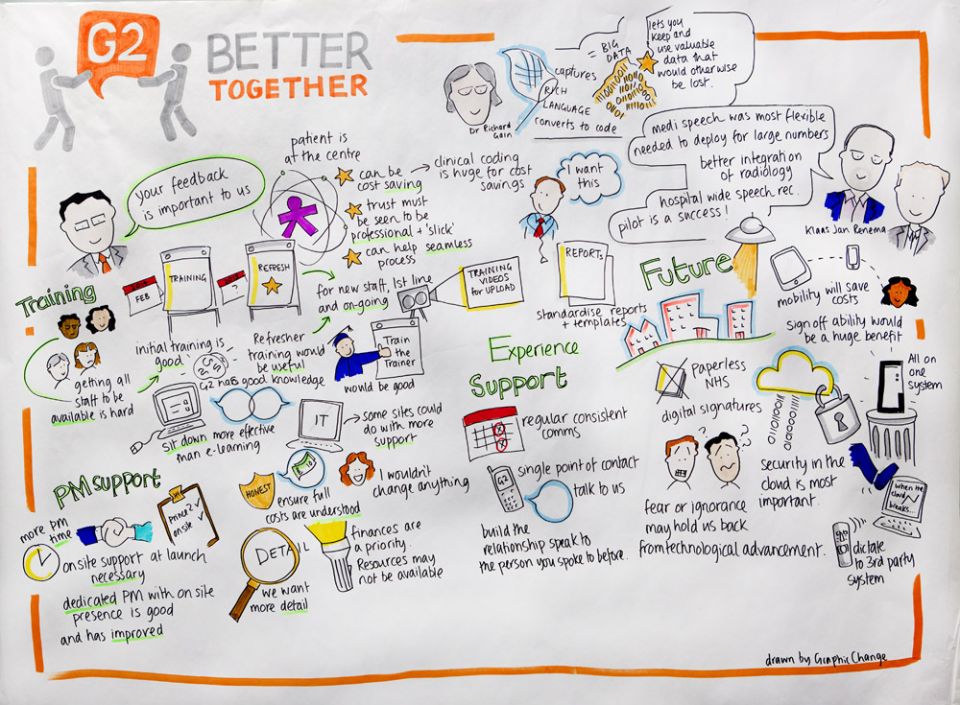 G2
BETTER
TOGETHER
Dr Richard
Gain
captures
RICH
LANGUAGE
converts to code
= BIG
DATA
lets you
keep and
use valuable
data that
would otherwise
be lost.
medi speech was most flexible
needed to deploy for large numbers
better integration
of radiology
hospital wide speech rec.
pilot is a success!
Klaas Jan Renema
your feedback
is important to us
patient is
at the centre
can be
cost saving
clinical coding
is huge for cost
savings
trust must
be seen to be
professional + 'slick'
can help seamless
process
I want
this
Training
FEB
TRAINING
?
REFRESH
for new staff, 1st line
and on-going
TRAINING
VIDEOS
for UPLOAD
REPORTS
standardise reports
+ templates
getting all
staff to be
available is hard
initial training is
good
Refresher
training would
be useful
G2 has good knowledge
Train
the
Trainer
would be good
sit down more effective
than e-learning
IT
some sites could
do with more
support
Experience
Support
regular consistent
comms
G2
single point of contact
talk to us
build the
relationship speak to
the person you spoke to before.
Future
mobility will save
costs
sign off ability would
be a huge benefit
paperless
NHS
digital signatures
All on
one
system
security in the
cloud is most
important.
fear or ignorance
may hold us back
from technological advancement.
when the
cloud
breaks...
dictate
to 3rd party
system
PM support
more PM
time
Prince 2
on site
on site support at launch
necessary
dedicated PM with on site
presence is good
and has improved
HONEST
ensure full
costs are understood
I wouldn't
change anything
DETAIL
we want
more detail
finances are
a priority.
Resources may
not be available
drawn by Graphic Change